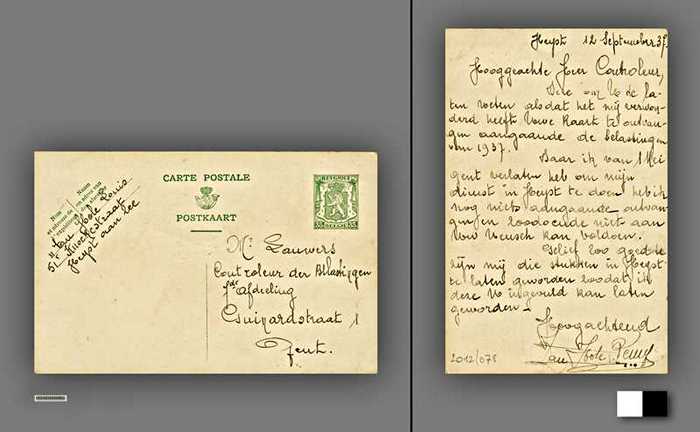 Nom
et adresse de
l'expéditeur
Naam
en adres van
den afzender
Van Hoste Louis
51 Knockestraat
Heyst aan Zee
CARTE POSTALE
POSTKAART
BELGIQUE
BELGIE
35
35
Mr Lauwers
Controleur der Belastingen
7de Afdeeling
Guizardstraat 1
Gent.
Heyst 12 September 37.
Hooggeachte Heer Controleur,
Deze om U te la-
ten weten als dat het mij verwon-
derd heeft Uwe Kaart te ontvan-
gen aangaande de belastingen
van 1937.
Daar ik van 1 Mei
gent verlaten heb om mijn
dienst in Heyst te doen heb ik
nog niets aangaande ontvan-
gen en zoodoende niet aan
Uw Wensch kan voldoen.
Gelief zoo goed te
zijn mij die stukken in Heyst
te laten geworden zoodat ik
deze U ingevuld kan laten
geworden -
Hoogachtend
Van Hoste
2012/078